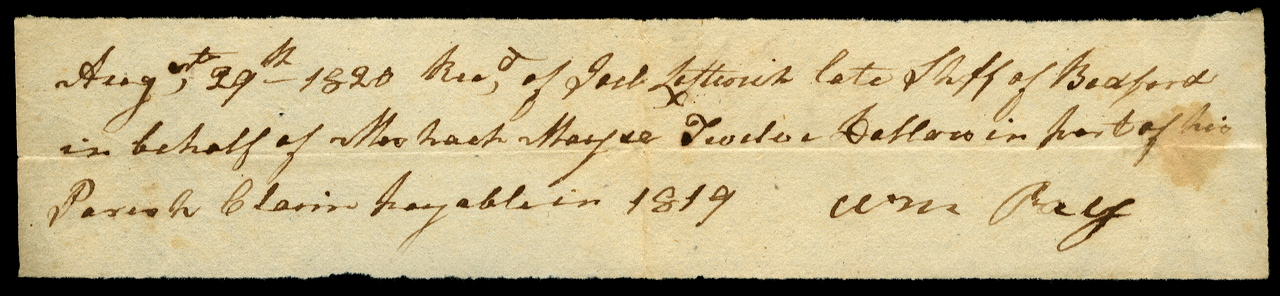 Augst, 29th 1820 Recd, of Joel Leftwich late Shff of Bedford
in behalf of Meshach Mayse Twelve Dollars in part of his
Parish Claim payable in 1819 Wm Ray